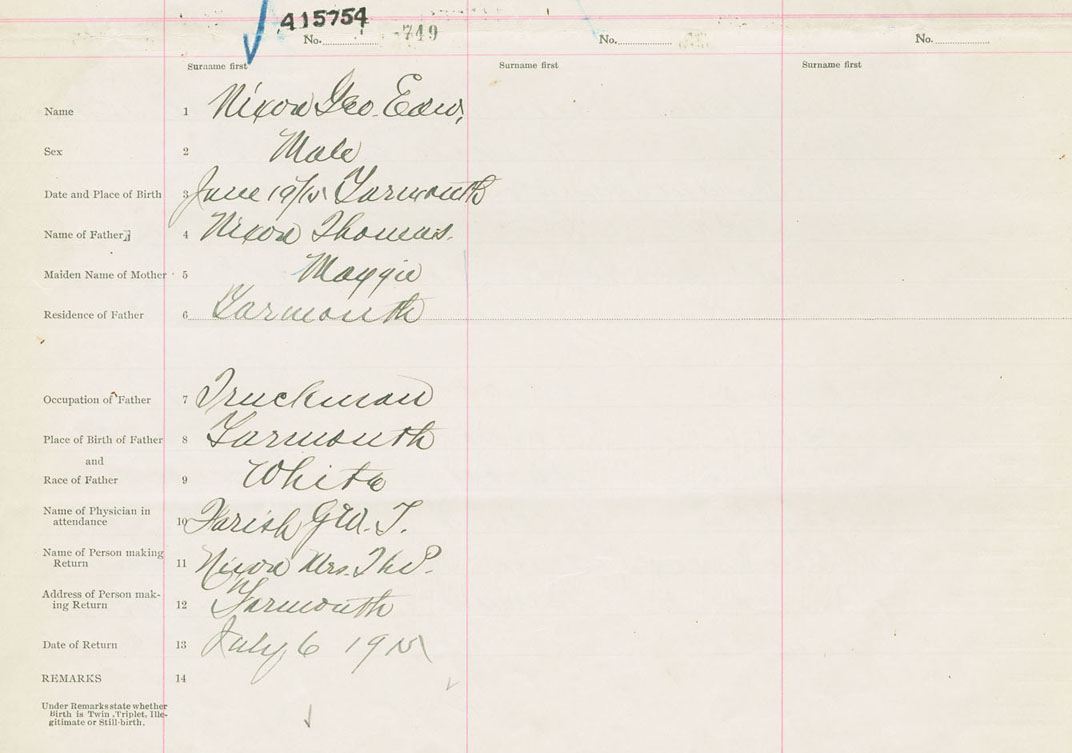 415754
No. -749 No. No.
Surname first Surname first Surname first
Name 1 Nixon Geo. Edw.
Sex 2 Male
Date and Place of Birth 3 June 19/15 Yarmouth
Name of Father 4 Nixon Thomas.
Maiden Name of Mother 5 Maggie
Residence of Father 6 Yarmouth
Occupation of Father 7 Truckman
Place of Birth of Father 8 Yarmouth
and
Race of Father 9 White
Name of Physician in
attendance 10 Farish Geo. T.
Name of Person making
Return 11 Nixon Mrs.
Address of Person mak-
ing Return 12 Yarmouth
Date of Return 13 July 6 1915
REMARKS 14
Under Remarks state whether
Birth is Twin, Triplet, Ille-
gitimate or Still-birth.